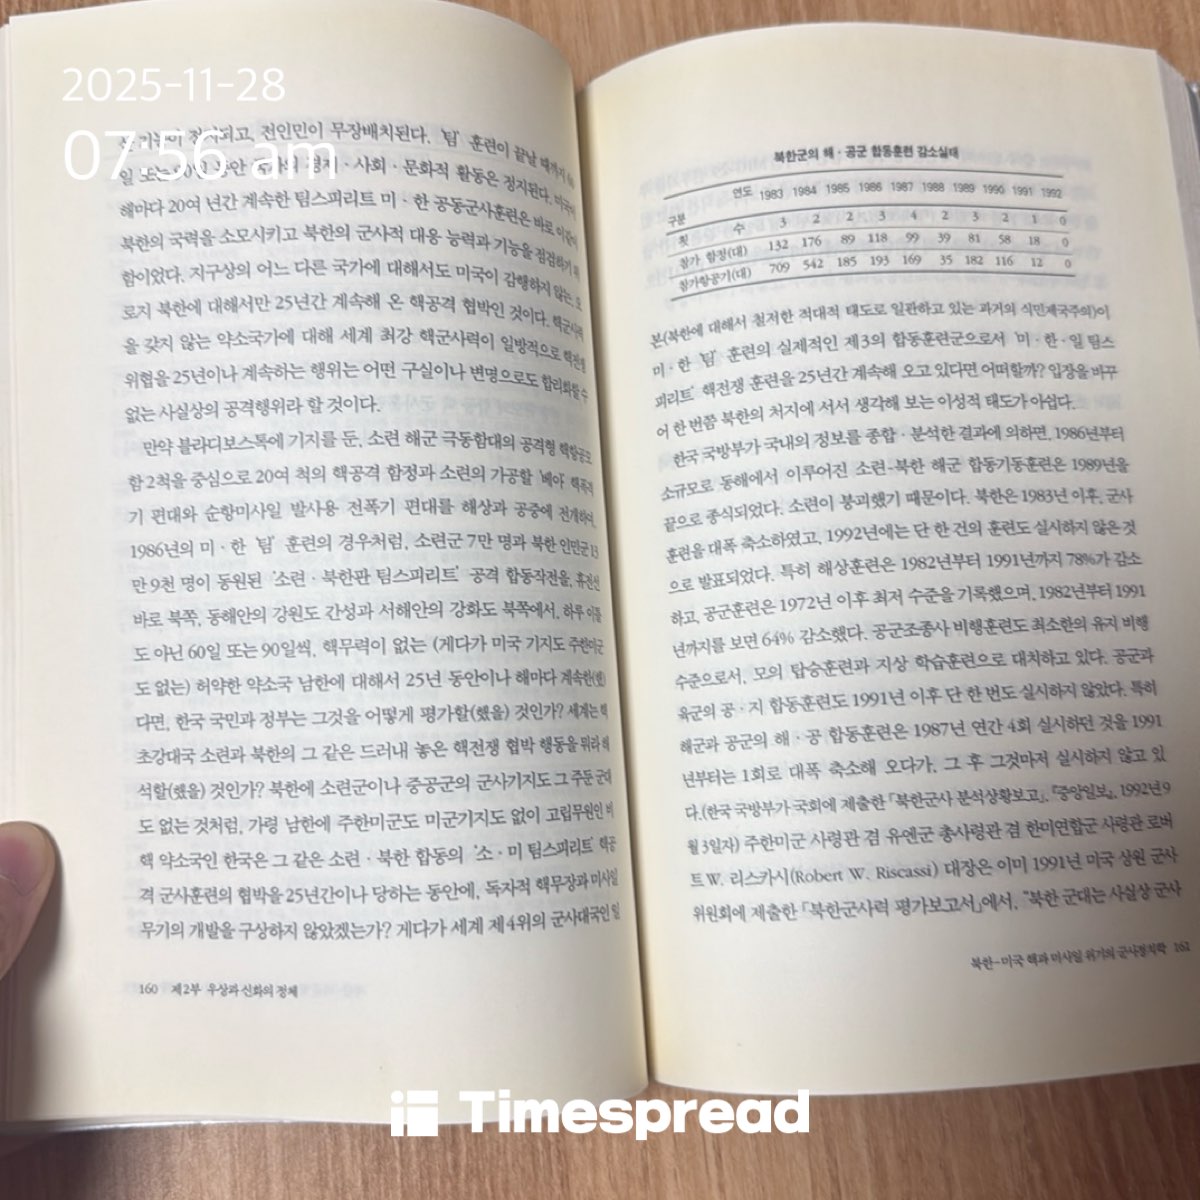 2025-11-28
07:56 am
전인민이 무장배치된다. '팀' 훈련이 끝날 때까지 60
일 또는 90일 동안 경제·사회·문화적 활동은 정지된다. 미국이
해마다 20여 년간 계속한 팀스피리트 미·한 공동군사훈련은 바로 이같이
북한의 국력을 소모시키고 북한의 군사적 대응 능력과 기능을 점검하기 위
함이었다. 지구상의 어느 다른 국가에 대해서도 미국이 감행하지 않는, 오
로지 북한에 대해서만 25년간 계속해 온 핵공격 협박인 것이다. 핵군사력
을 갖지 않는 약소국가에 대해 세계 최강 핵군사력이 일방적으로 핵전쟁
위협을 25년이나 계속하는 행위는 어떤 구실이나 변명으로도 합리화할 수
없는 사실상의 공격행위라 할 것이다.
만약 블라디보스톡에 기지를 둔, 소련 해군 극동함대의 공격형 핵항공모
함 2척을 중심으로 20여 척의 핵공격 함정과 소련의 가공할 '베야' 핵폭격
기 편대와 순항미사일 발사용 전폭기 편대를 해상과 공중에 전개하여,
1986년의 미·한 '팀' 훈련의 경우처럼, 소련군 7만 명과 북한 인민군 13
만 9천 명이 동원된 '소련·북한판 팀스피리트' 공격 합동작전을, 휴전선
바로 북쪽, 동해안의 강원도 간성과 서해안의 강화도 북쪽에서, 하루 이틀
도 아닌 60일 또는 90일씩, 핵무력이 없는 (게다가 미국 기지도 주한미군
도 없는) 허약한 약소국 남한에 대해서 25년 동안이나 해마다 계속한(했)
다면, 한국 국민과 정부는 그것을 어떻게 평가할(했을) 것인가? 세계는 핵
초강대국 소련과 북한의 그 같은 드러내 놓은 핵전쟁 협박 행동을 뭐라 해
석할(했을) 것인가? 북한에 소련군이나 중공군의 군사기지도 그 주둔 군대
도 없는 것처럼, 가령 남한에 주한미군도 미군기지도 없이 고립무원인 비
핵 약소국인 한국은 그 같은 소련·북한 합동의 '소·미 팀스피리트' 핵공
격 군사훈련의 협박을 25년간이나 당하는 동안에, 독자적 핵무장과 미사일
무기의 개발을 구상하지 않았겠는가? 게다가 세계 제4위의 군사대국인 일
160 제2부 우상과 신화의 정체
북한군의 해·공군 합동훈련 감소실태
연도 1983 1984 1985 1986 1987 1988 1989 1990 1991 1992
구분
횟 수 3 2 2 3 4 2 3 2 1 0
참가 함정(대) 132 176 89 118 99 39 81 58 18 0
참가항공기(대) 709 542 185 193 169 35 182 116 12 0
본(북한에 대해서 철저한 적대적 태도로 일관하고 있는 과거의 식민제국주의)이
미·한 '팀' 훈련의 실제적인 제3의 합동훈련군으로서 '미·한·일 팀스
피리트' 핵전쟁 훈련을 25년간 계속해 오고 있다면 어떠할까? 입장을 바꾸
어 한 번쯤 북한의 처지에 서서 생각해 보는 이성적 태도가 아쉽다.
한국 국방부가 국내의 정보를 종합·분석한 결과에 의하면, 1986년부터
소규모로 동해에서 이루어진 소련-북한 해군 합동기동훈련은 1989년을
끝으로 종식되었다. 소련이 붕괴했기 때문이다. 북한은 1983년 이후, 군사
훈련을 대폭 축소하였고, 1992년에는 단 한 건의 훈련도 실시하지 않은 것
으로 발표되었다. 특히 해상훈련은 1982년부터 1991년까지 78%가 감소
하고, 공군훈련은 1972년 이후 최저 수준을 기록했으며, 1982년부터 1991
년까지를 보면 64% 감소했다. 공군조종사 비행훈련도 최소한의 유지 비행
수준으로서, 모의 탑승훈련과 지상 학습훈련으로 대치하고 있다. 공군과
육군의 공·지 합동훈련도 1991년 이후 단 한 번도 실시하지 않았다. 특히
해군과 공군의 해·공 합동훈련은 1987년 연간 4회 실시하던 것을 1991
년부터는 1회로 대폭 축소해 오다가, 그 후 그것마저 실시하지 않고 있
다.(한국 국방부가 국회에 제출한 「북한군사 분석상황보고」, 『중앙일보』, 1992년 9
월 3일자) 주한미군 사령관 겸 유엔군 총사령관 겸 한미연합군 사령관 로버
트 W. 리스카시(Robert W. Riscassi) 대장은 이미 1991년 미국 상원 군사
위원회에 제출한 「북한군사력 평가보고서」에서, "북한 군대는 사실상 군사
북한-미국 핵과 미사일 위기의 군사정치학 161
Timespread